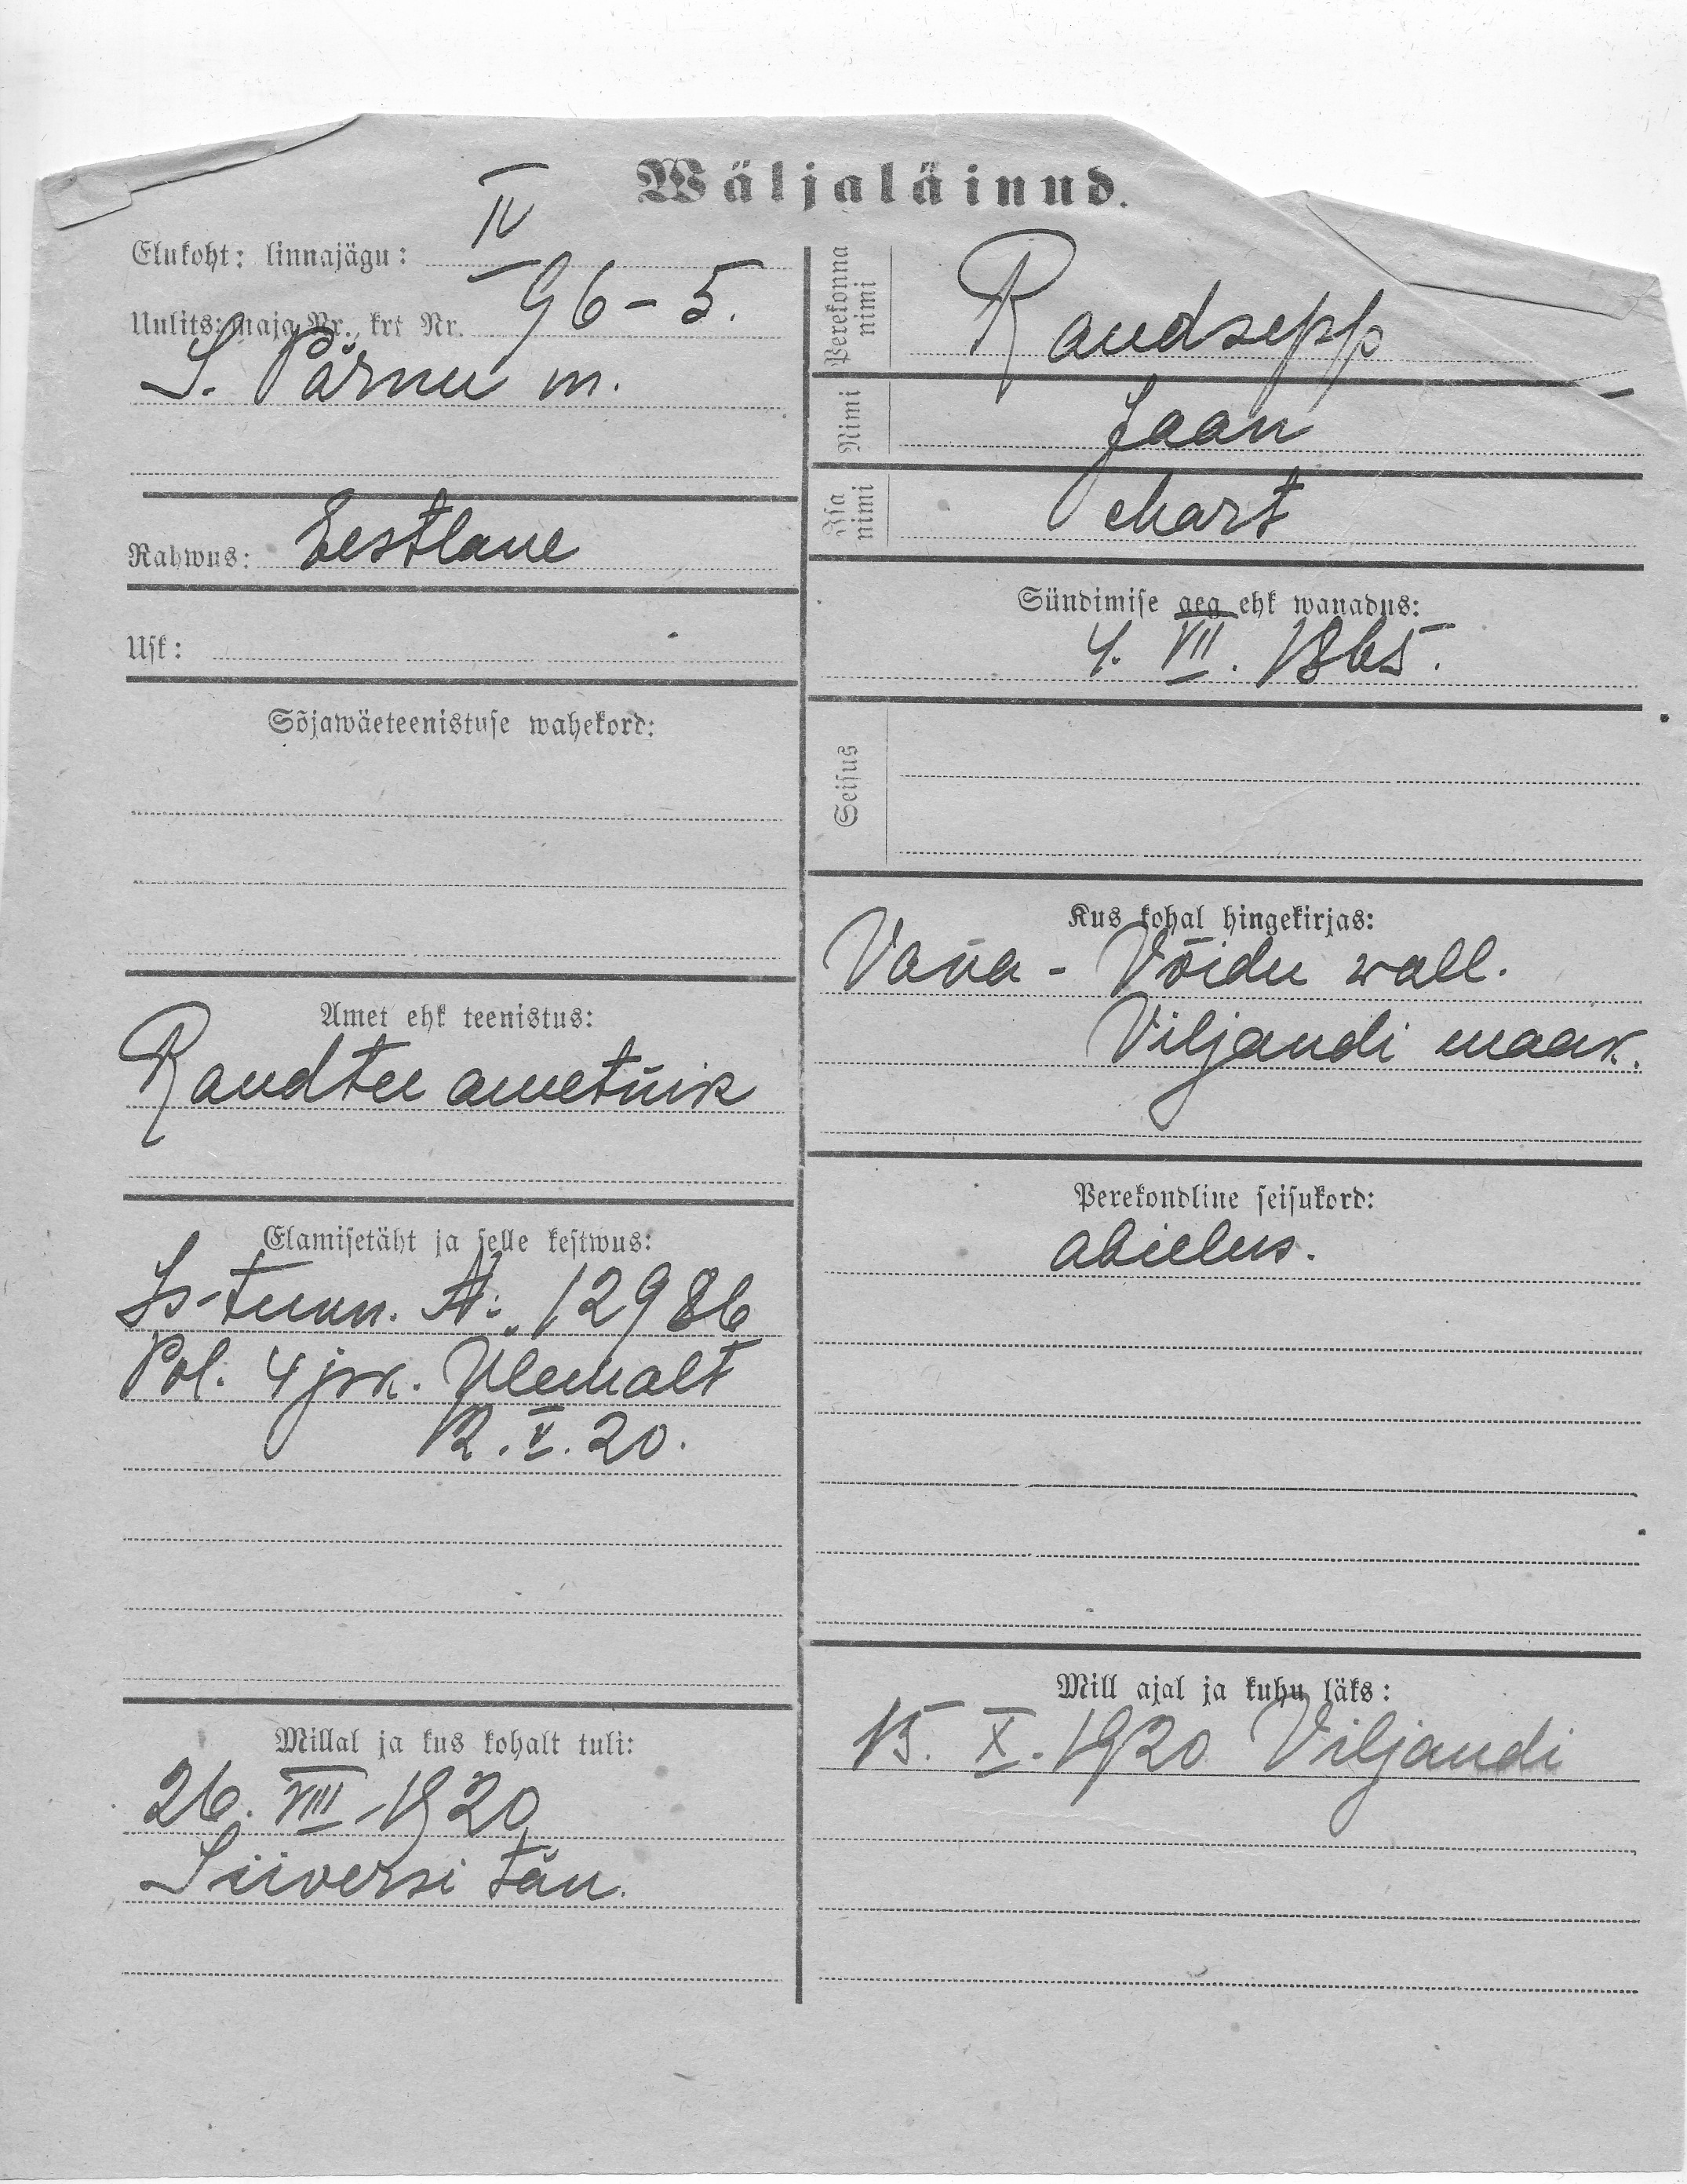 Wäljaläinud.
Elukoht: linnajägu: IV
Uulits: maja Nr., krt Nr. 96-5.
S. Pärnu m.
Rahwus: Eestlane
Usk:
Sõjawäeteenistuse wahekord:
Amet ehk teenistus:
Raudtee ametnik
Elamisetäht ja selle kestwus:
Is-tunn. № 12986
Pol. 4 jsk. Ülemalt
12. V. 20.
Millal ja kus kohalt tuli:
26. VIII 1920
Siiversi tän.
Perekonna nimi Raudsepp
Nimi Jaan
Isa nimi Mart
Sündimise aeg ehk wanadus:
4. VII. 1865.
Seisus
Kus kohal hingekirjas:
Vana-Võidu wall.
Viljandi maak.
Perekondline seisukord:
abielus.
Mill ajal ja kuhu läks:
15. X. 1920 Viljandi